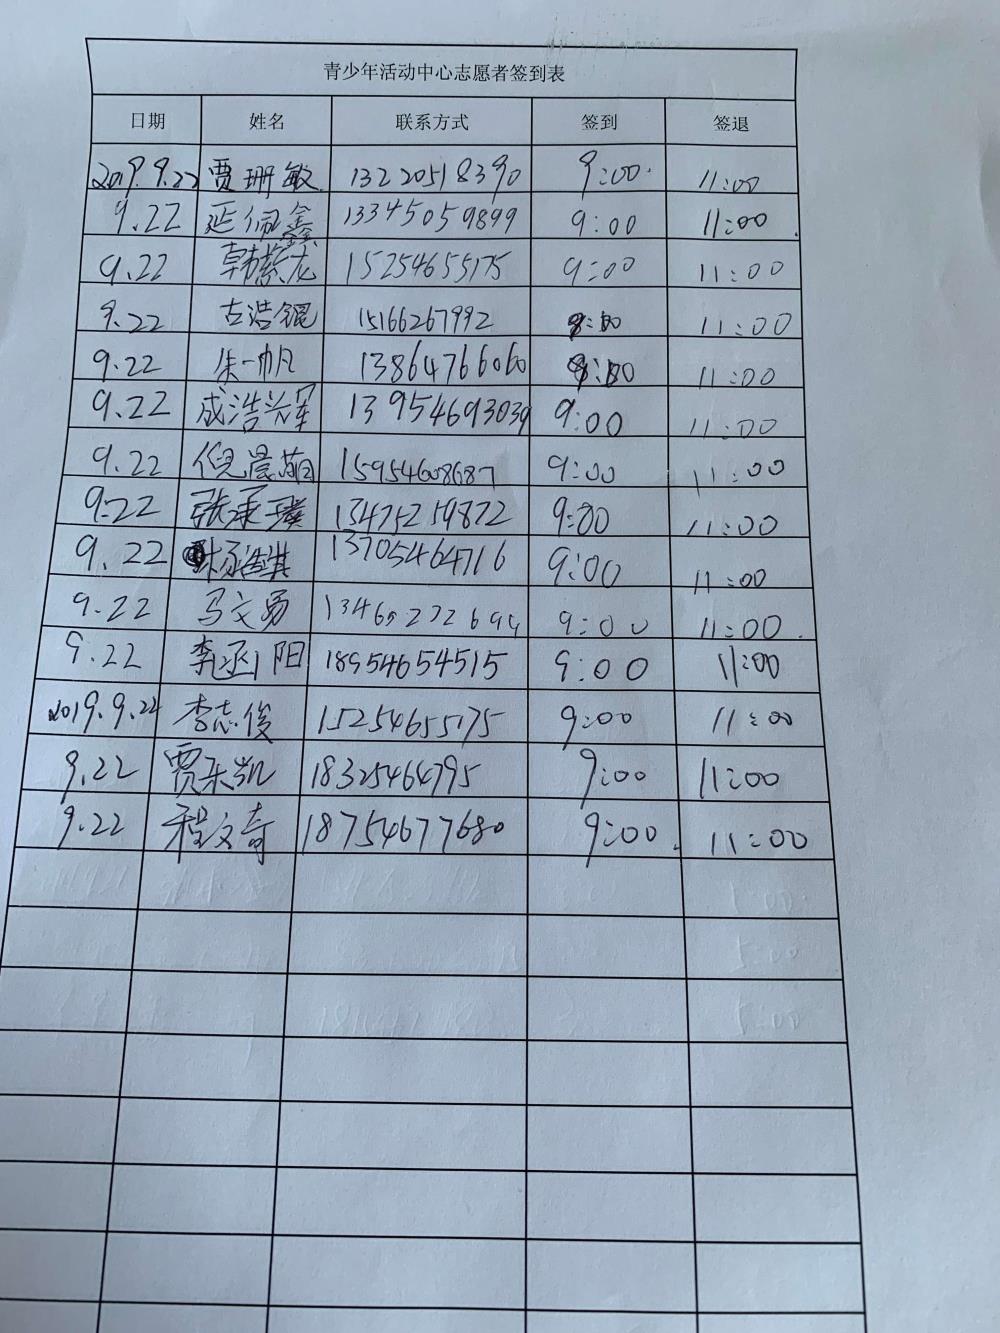 青少年活动中心志愿者签到表
日期 姓名 联系方式 签到 签退
2019.9.22 贾珊敏 13220518390 9:00 11:00
9.22 延佩鑫 13345059899 9:00 11:00
9.22 韩紫龙 15254655175 9:00 11:00
9.22 古浩锟 15166267992 11:00
9.22 朱一帆 13864766060 11:00
9.22 成浩 13954693039 9:00 11:00
9.22 倪晨萌 15954608687 9:00 11:00
9.22 张承璞 13475259872 9:00 11:00
9.22 13705464716 9:00 11:00
9.22 马文勇 9:00 11:00
9.22 李函阳 18954654515 9:00 11:00
2019.9.22 李志俊 15254655175 9:00 11:00
9.22 贾乐凯 18325464795 9:00 11:00
9.22 程文奇 18754677680 9:00 11:00